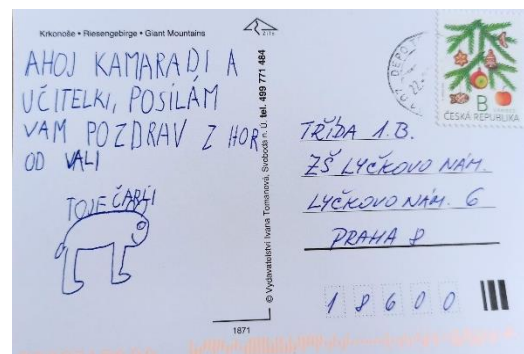 Krkonoše • Riesengebirge • Giant Mountains
AHOJ KAMARADI A
UČITELKI, POSILÁM
VAM POZDRAV Z HOR
OD VALI
TOJE ČARLI
© Vydavatelství Ivana Tomanová, Svoboda n. Ú. tel. 499 771 484
1871
DEPO
B
ČESKÁ REPUBLIKA
TŘÍDA 1.B.
ZŠ LYČKOVO NÁM.
LYČKOVO NÁM. 6
PRAHA 8
18600